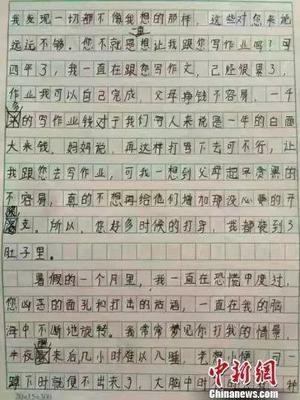 我发现一切都不像我想的那样，这些对您来说
远远不够。您不就是想让我跟您写作业吗？可
四年了，我一直在跟您写作文，已经很累了，
作业我可以自己完成，父母挣钱不容易，一千
的写作业钱对于我们穷人来说是一年的白面
大米钱，妈妈说，再这样打骂下去可不行，让
我跟您去写作业，可我一想到父母起早贪黑的
不容易，真的不想再给他们增加那没必要的开
支。所以，您好多时候的打骂，我都装到了
肚子里。
暑假的一个月里，我一直在恐慌中度过，
您凶恶的面孔和打出的话语，一直在我的脑
海中不断地旋转。我常常梦见你打我的情景，
半夜 来后几小时难以入睡，老想
蹲下时就便不出来了，大脑中时 种
20×15=300
中新网